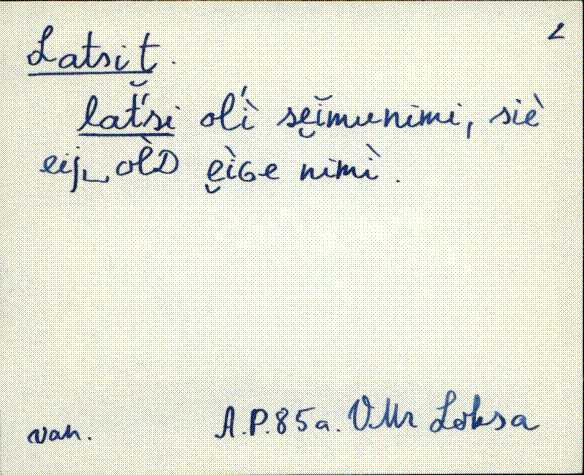 2
Latsit.
lat̆'si olì sẹĭmunimi, siè
eij‿ olD ẹìɢe nimì.
van. A.P. 85a. VMr Loksa